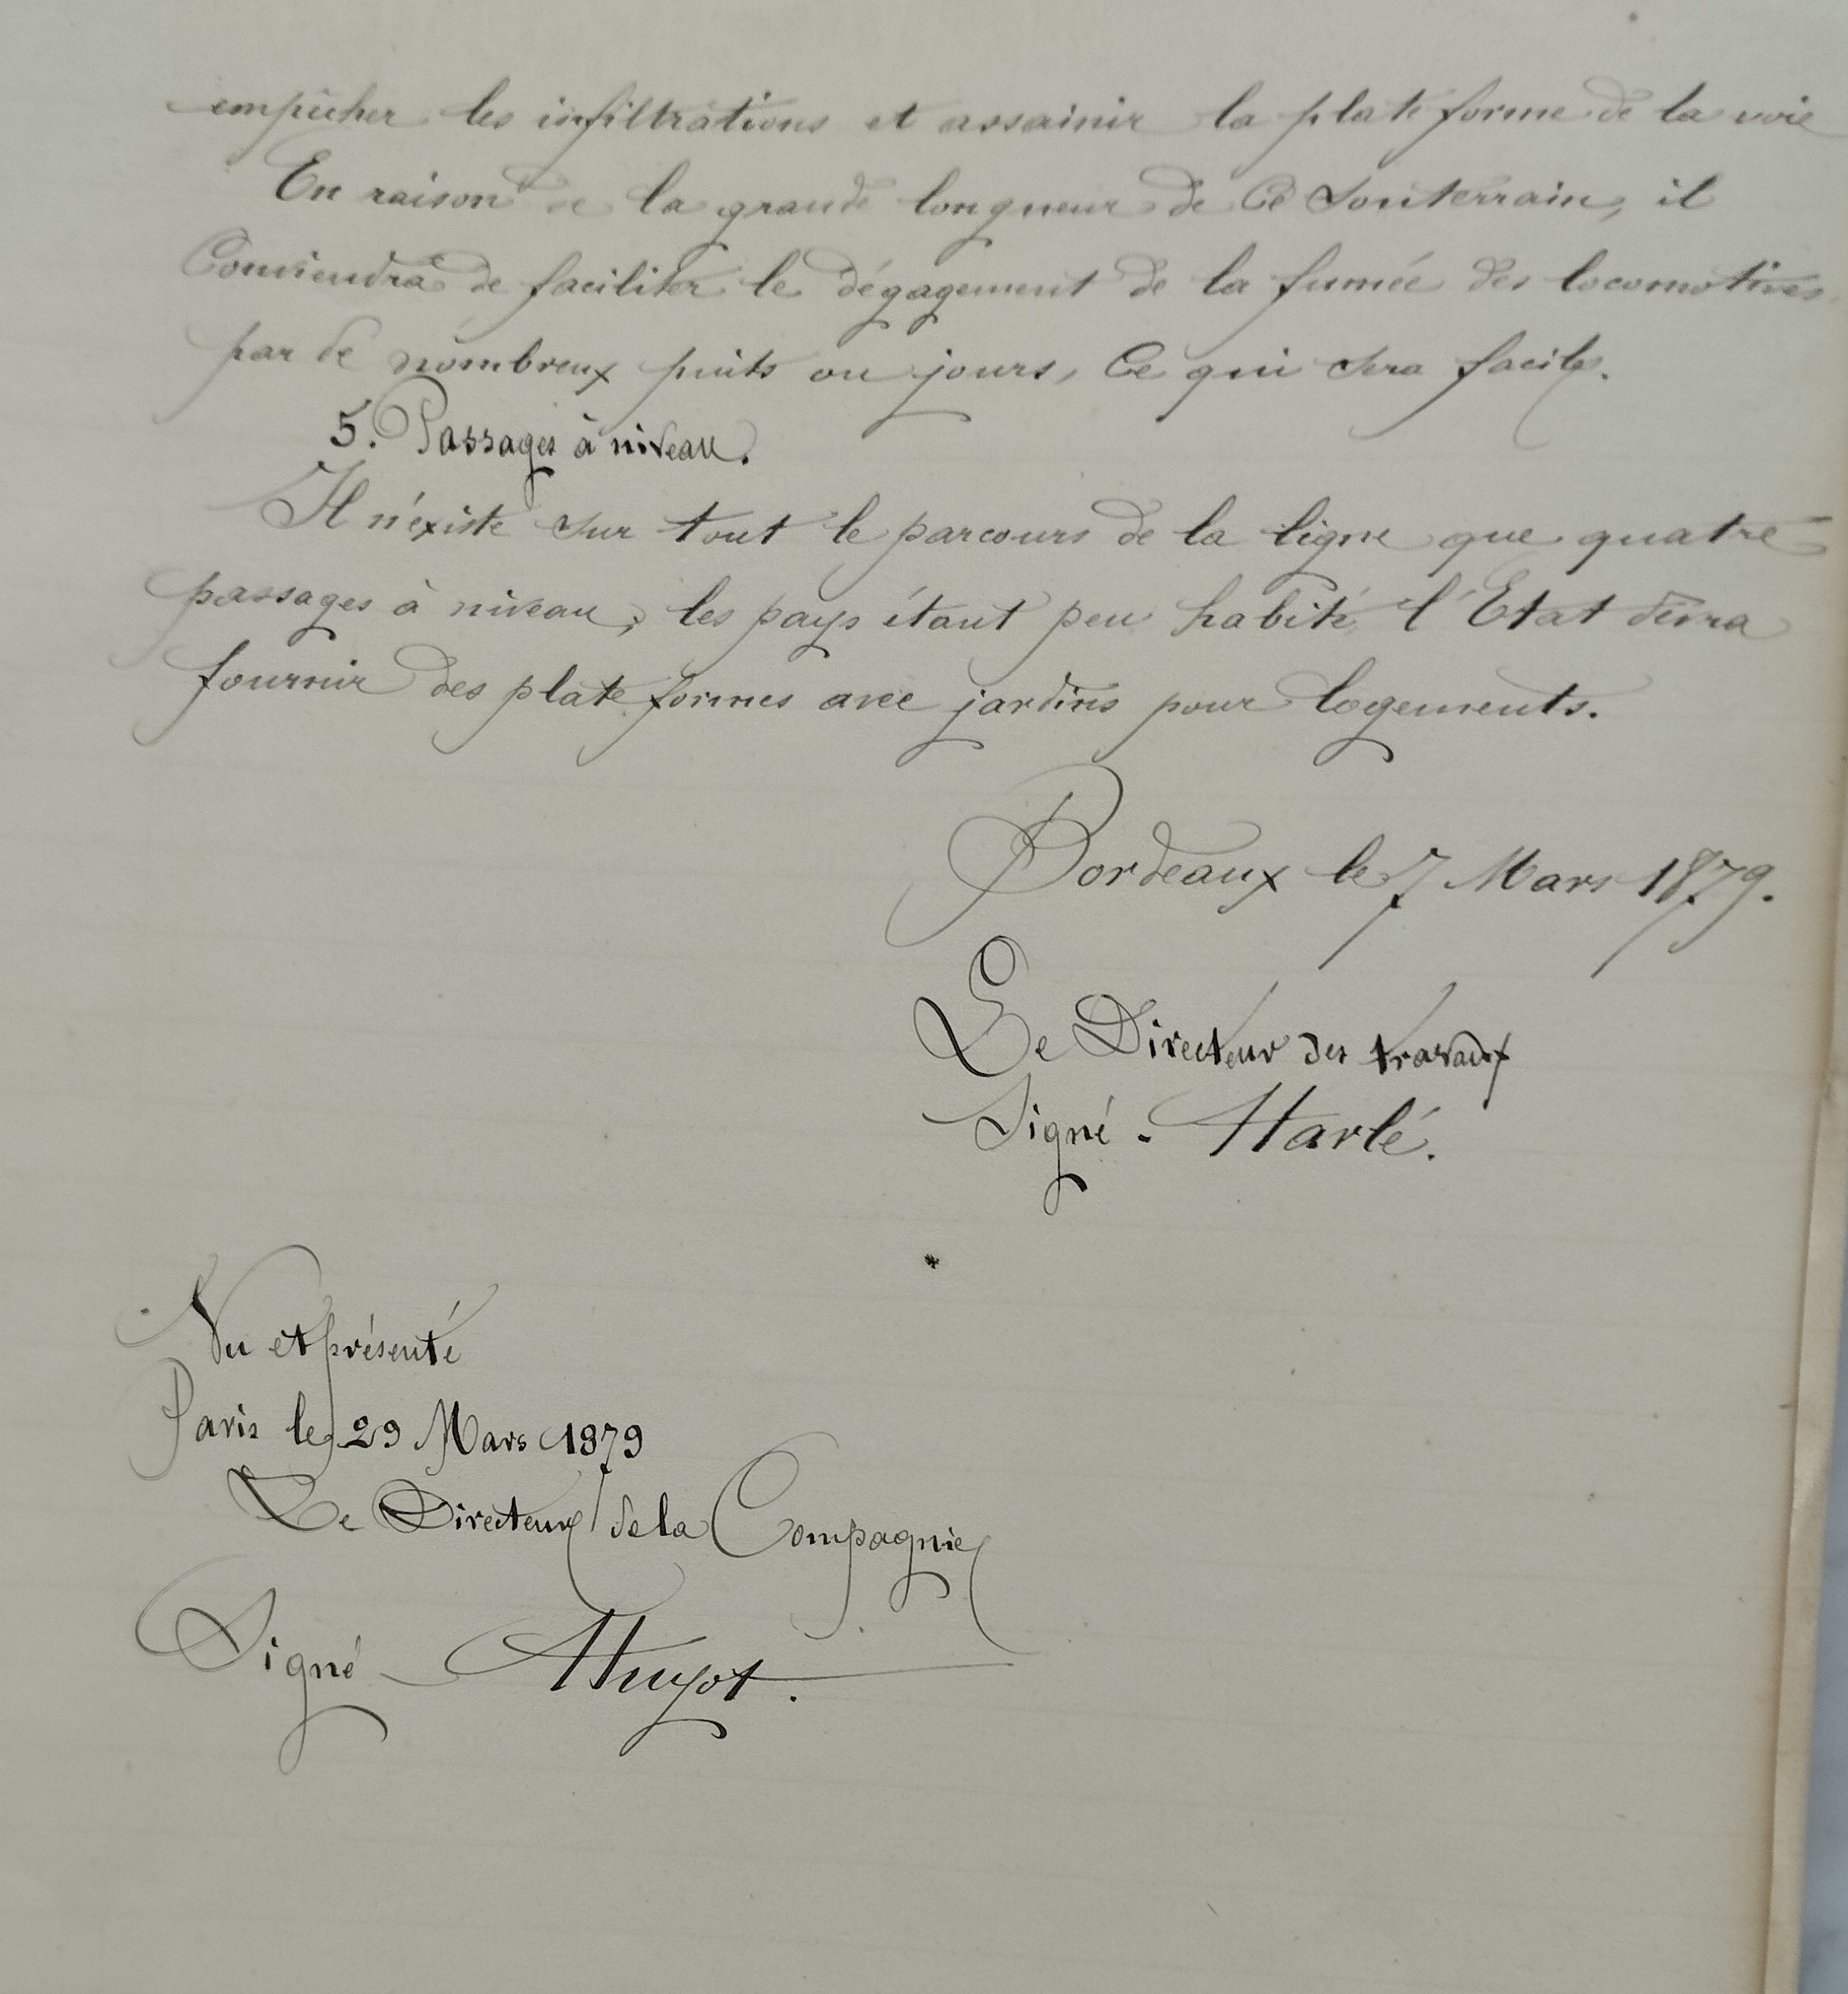 empêcher les infiltrations et assainir la plate forme de la voie
En raison de la grande longueur de ce souterrain, il
Conviendra de faciliter le dégagement de la fumée des locomotives
par de nombreux puits ou jours, ce qui sera facile.
5. Passages à niveau.
Il n'existe sur tout le parcours de la ligne que quatre
passages à niveau; les pays étant peu habité l'Etat devra
fournir des plate formes avec jardins pour logements.
Bordeaux le 7 Mars 1879.
Le Directeur des travaux
Signé - Harlé.
Vu et présenté
Paris le 29 Mars 1879
Le Directeur de la Compagnie
Signé - Huyot.